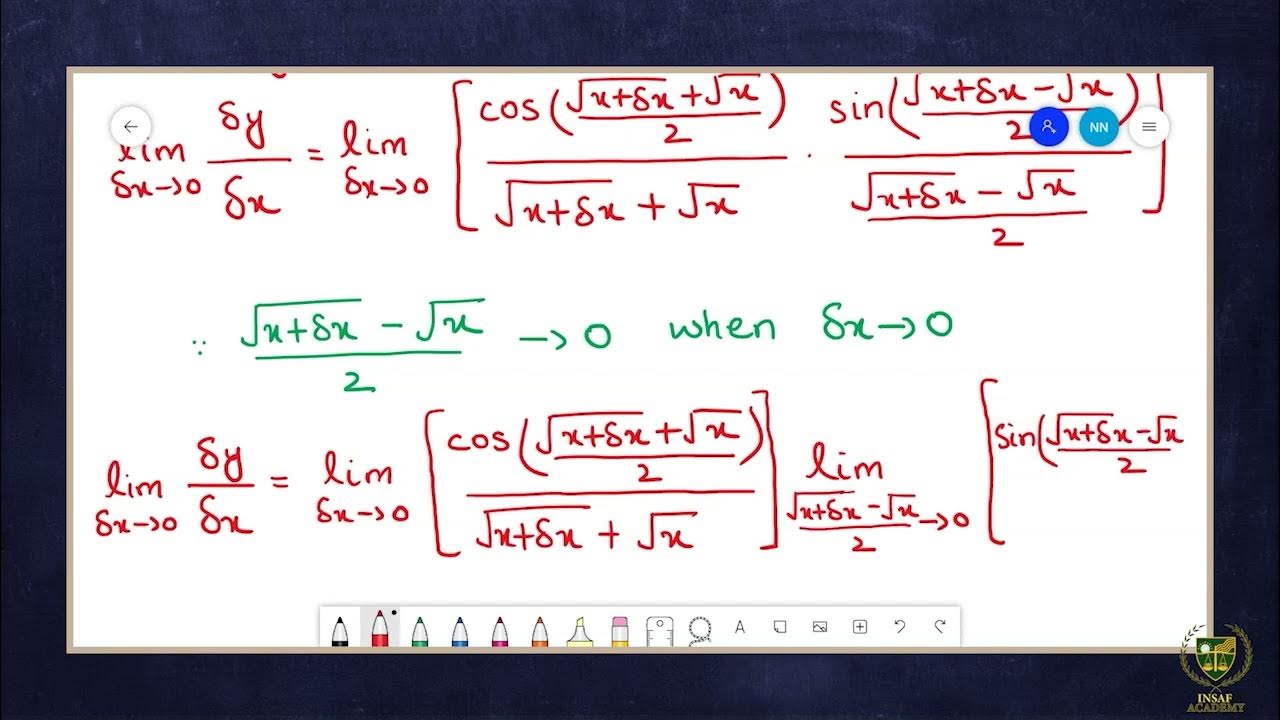 lim δx→0 δy/δx = lim δx→0 [ cos((√(x+δx) + √x)/2) / (√(x+δx) + √x) · sin((√(x+δx) − √x)/2) / ((√(x+δx) − √x)/2) ]
NN
∵ (√(x+δx) − √x)/2 → 0 when δx→0
lim δx→0 δy/δx = lim δx→0 [ cos((√(x+δx) + √x)/2) / (√(x+δx) + √x) ] lim (√(x+δx) − √x)/2 → 0 [ sin((√(x+δx) − √x)/2
A
INSAF
ACADEMY